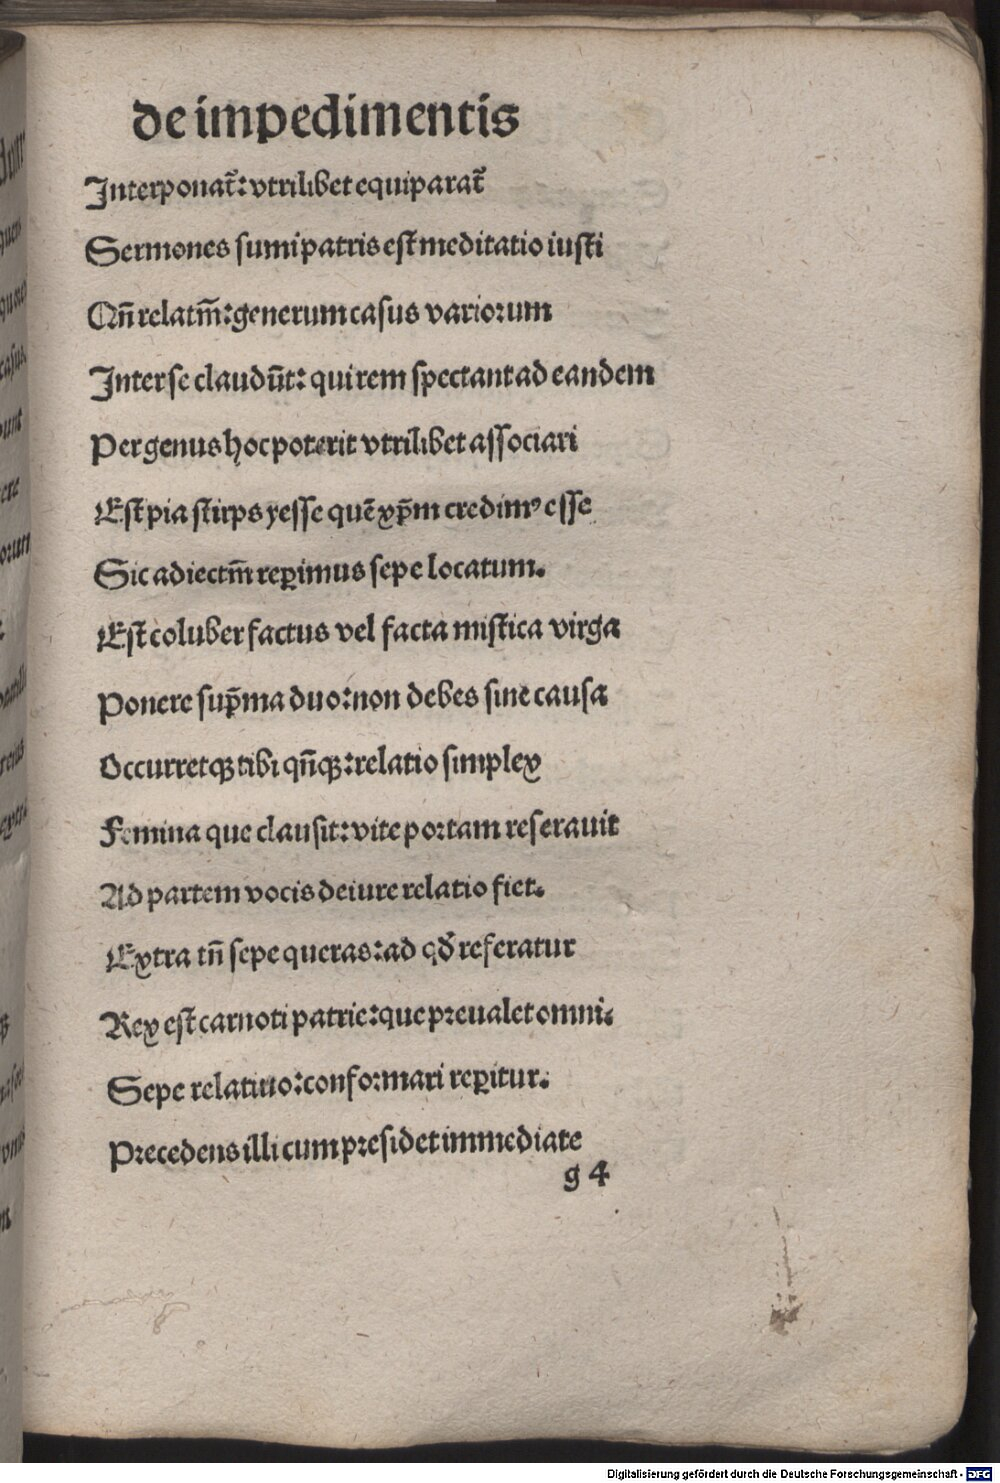 de impedimentis
Interponat̄: vtrilibet equiparat̄
Sermones sumi patris est meditatio iusti
Qn̄ relatm̄: generum casus variorum
Inter se claudūt: qui rem spectant ad eandem
Per genus hoc poterit vtrilibet associari
Est pia stirps yesse quē xp̄m credimꝰ esse
Sic adiectm̄ reꝑimus sepe locatum.
Est coluber factus vel facta mistica virga
Ponere sup̄ma duo: non debes sine causa
Occurretqꝫ tibi qn̄qꝫ: relatio simplex
Femina que clausit: vite portam reserauit
Ad partem vocis de iure relatio fiet.
Extra tn̄ sepe queras: ad qđ referatur
Rex est carnoti patrie: que preualet omni.
Sepe relatiuo: conformari reꝑitur.
Precedens illi cum presidet immediate
g 4
Digitalisierung gefördert durch die Deutsche Forschungsgemeinschaft - DFG